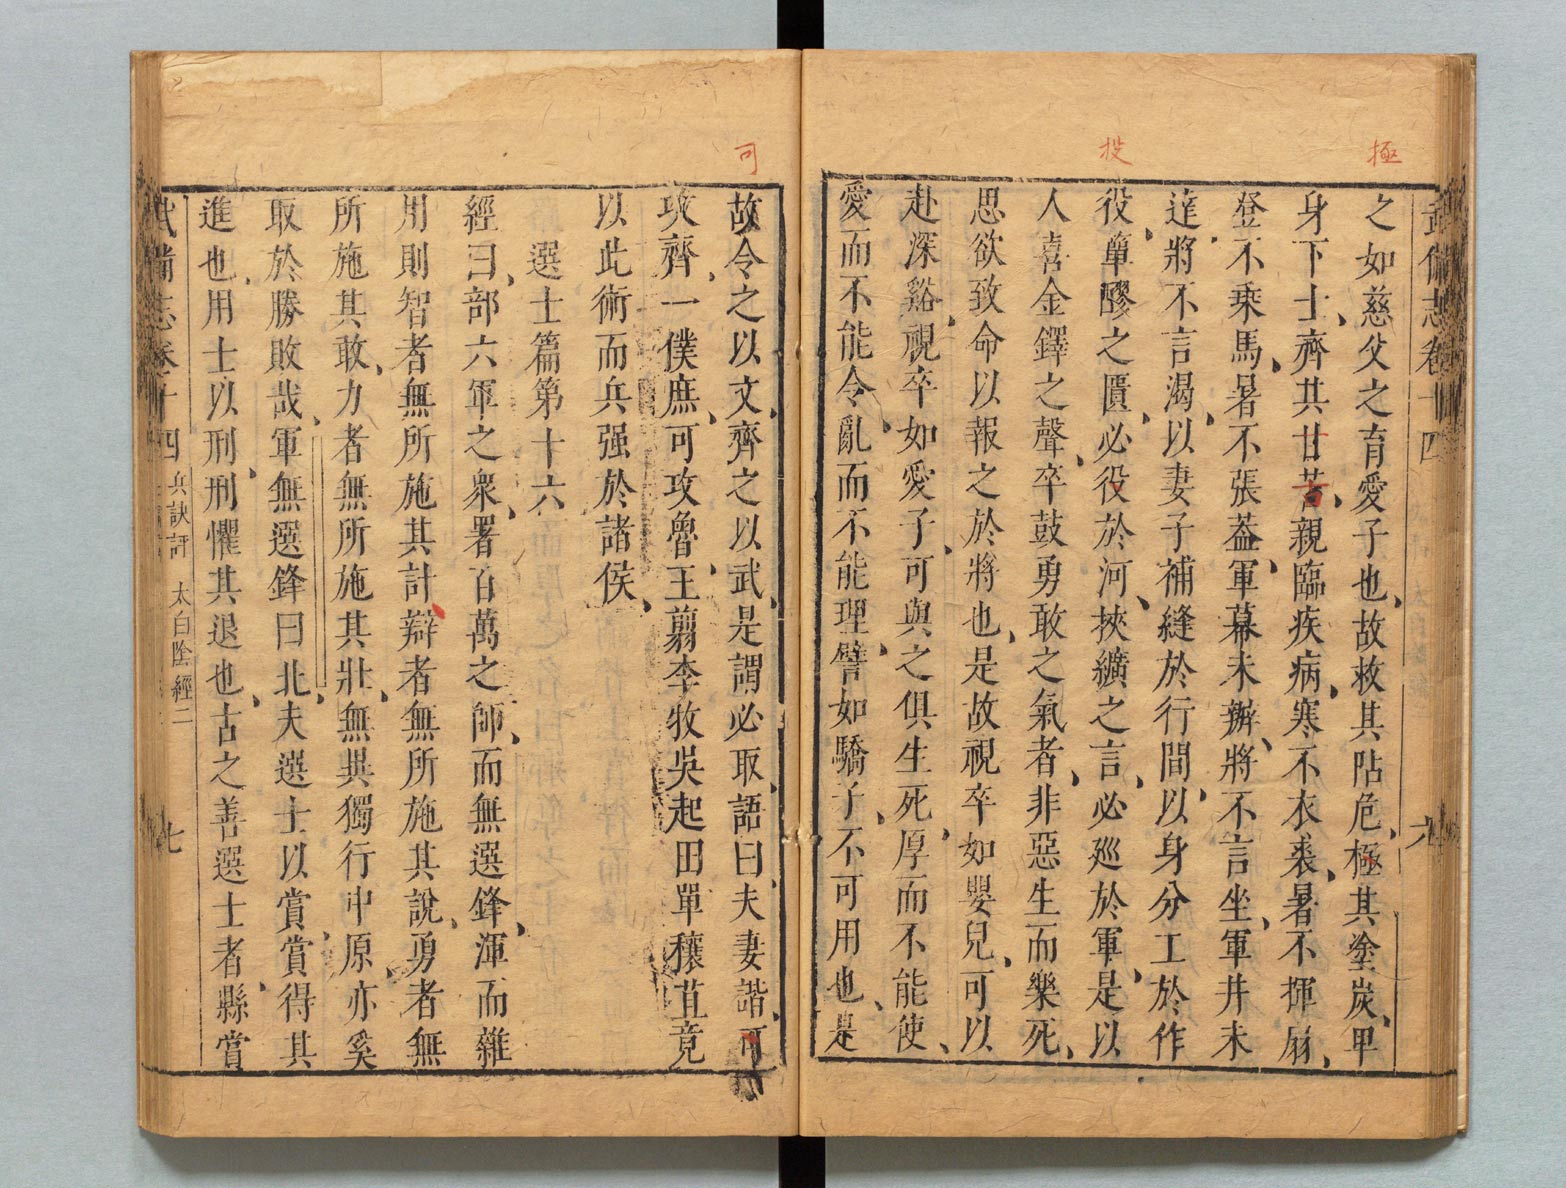 極
投
武備志卷十四
六
之如慈父之育愛子也故救其阽危極其塗炭畢
身下士齊其甘苦親臨疾病寒不衣裘暑不揮扇
登不乘馬暑不張葢軍幕未辦將不言坐軍井未
達將不言渴以妻子補縫於行間以身分工於作
役簞醪之匱必役於河挾纊之言必廵於軍是以
人喜金鐸之聲卒鼓勇敢之氣者非惡生而樂死
思欲致命以報之於將也是故視卒如嬰兒可以
赴深谿視卒如愛子可與之俱生死厚而不能使
愛而不能令亂而不能理譬如驕子不可用也是
可
故令之以文齊之以武是謂必取語曰夫妻諧可
攻齊一僕庶可攻魯王翦李牧吳起田單穰苴竟
以此術而兵强於諸侯
選士篇第十六
經曰部六軍之衆署百萬之師而無選鋒渾而雜
用則智者無所施其計辯者無所施其說勇者無
所施其敢力者無所施其壯無異獨行中原亦奚
取於勝敗哉軍無選鋒曰北夫選士以賞賞得其
進也用士以刑刑懼其退也古之善選士者縣賞
武備志卷十四 兵訣評 太白陰經二
七